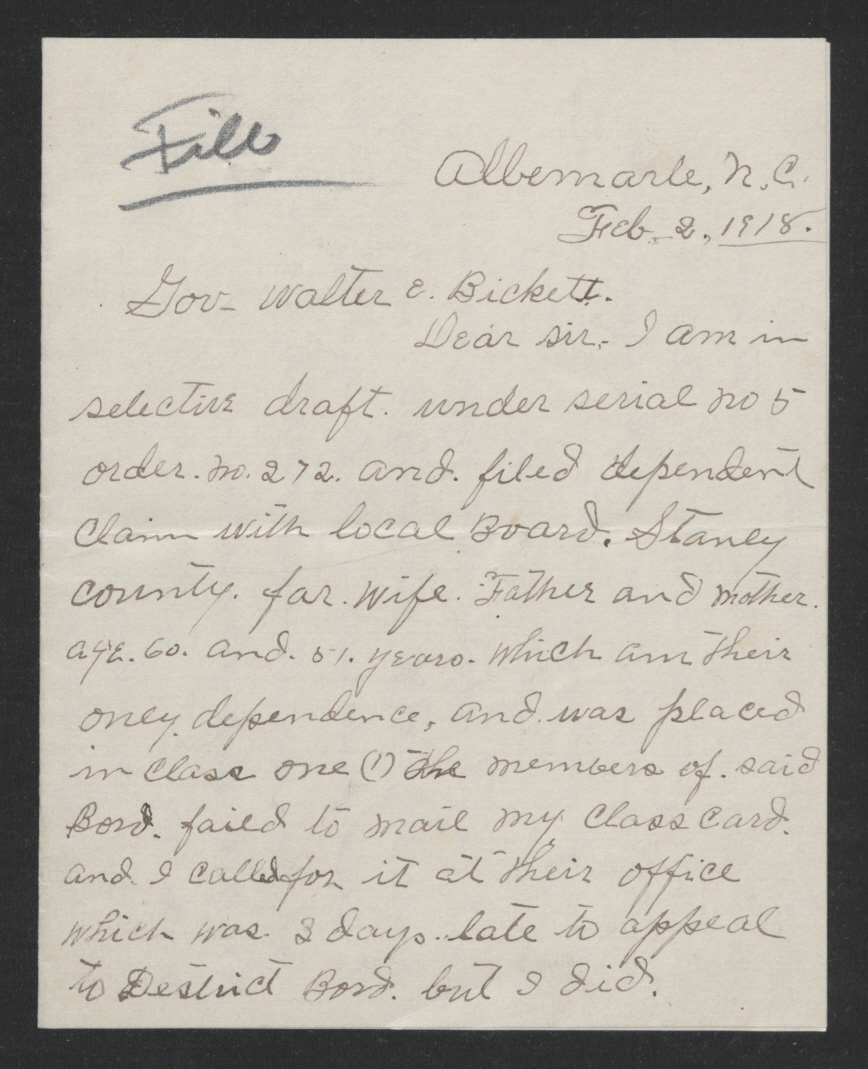 File
Albemarle, N.C.
Feb. 2, 1918.
Gov- Walter E. Bickett.
Dear sir,- I am in
selective draft. under serial no 5
order. no. 272. and. filed dependent
claim with local Board. Stanly
county. for. wife. Father and mother.
age. 60. and. 51. years. which am their
only dependence, and was placed
in Class one (1) the members of. said
Bord. failed to mail my Class card.
and. I called for it at their office
which was 3 days. late to appeal
to Destrict Bord. but I did.